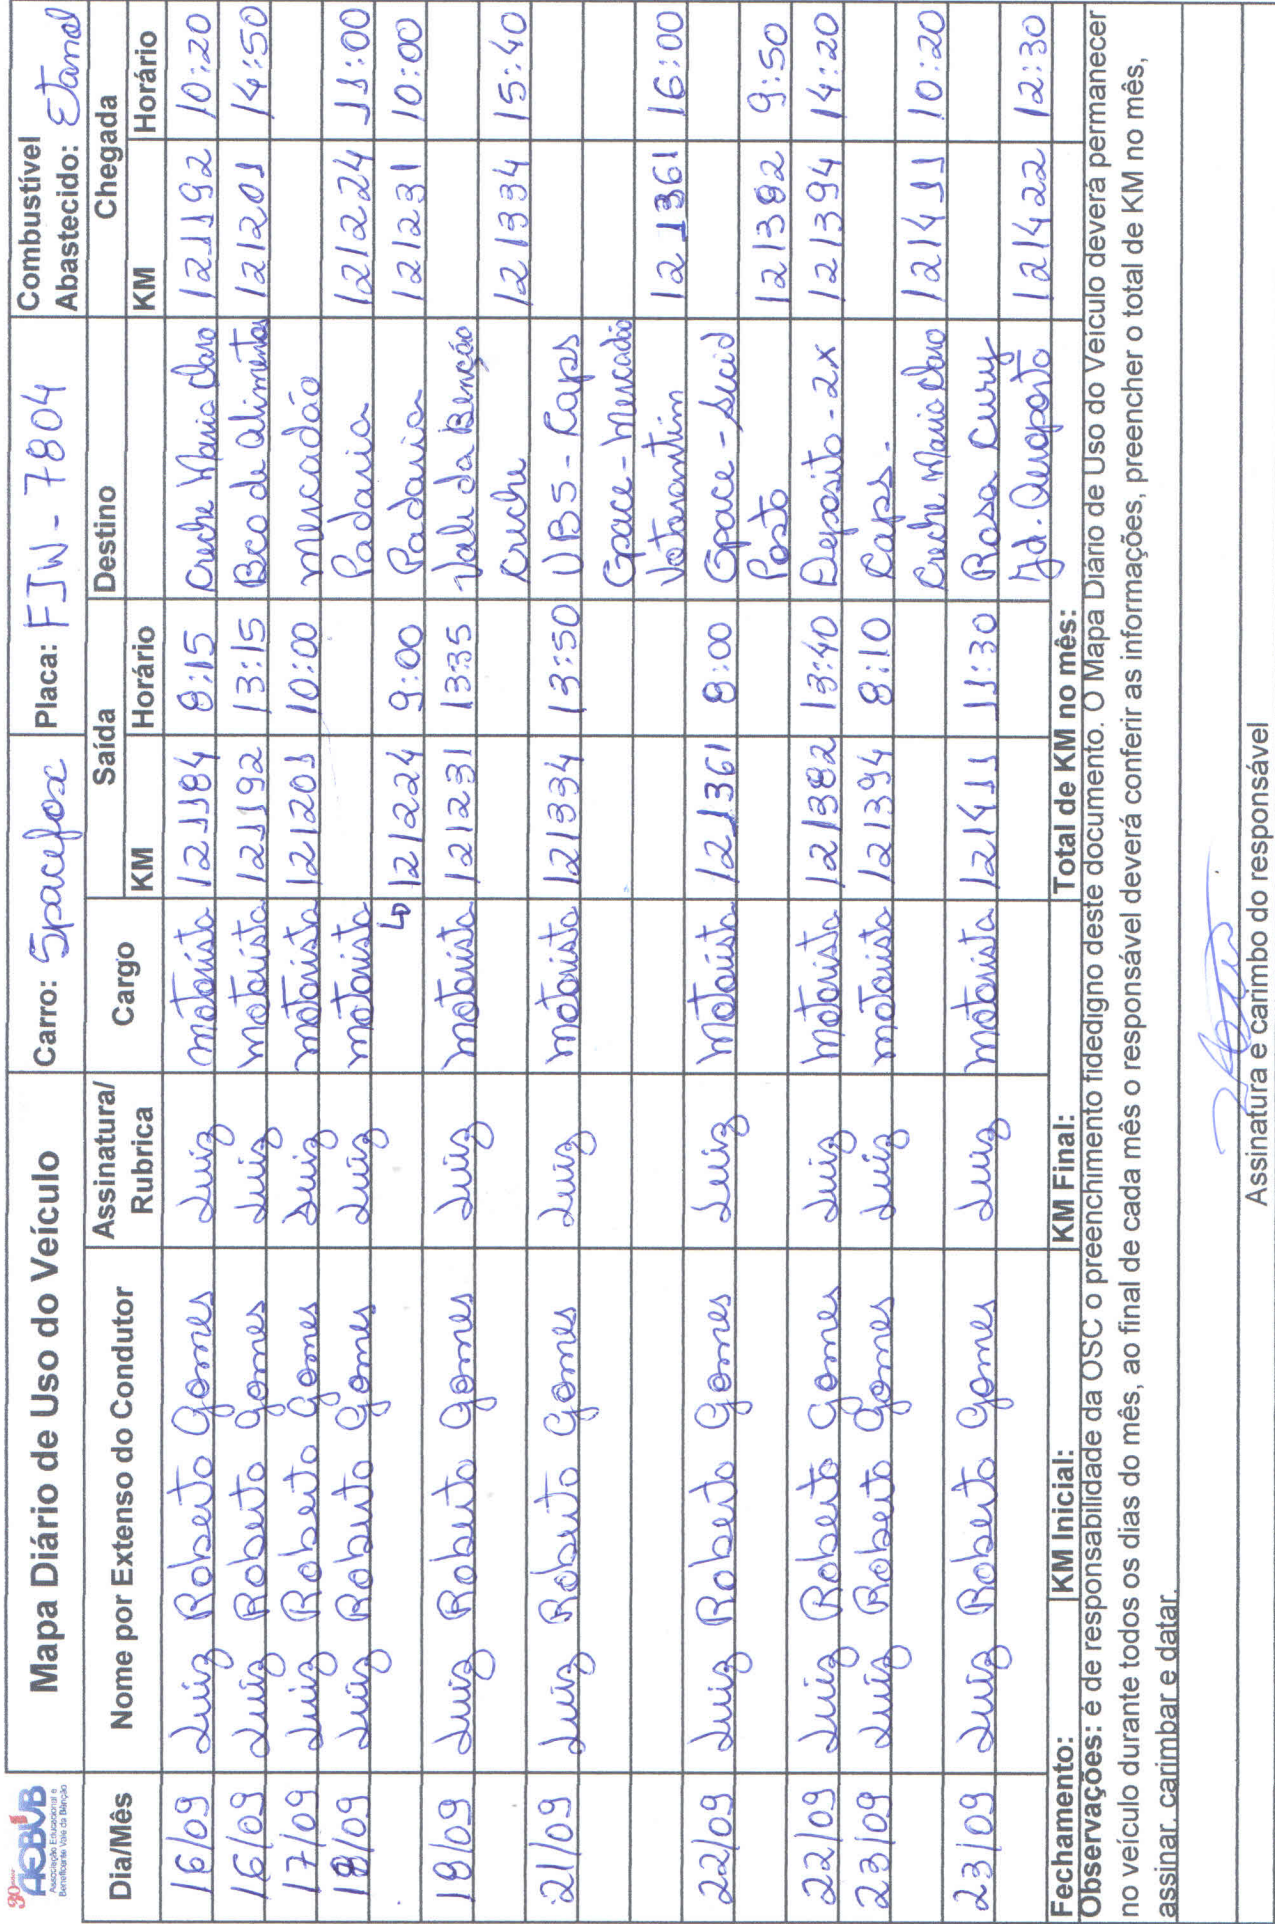 30anos
AEBVB
Associação Educacional e
Beneficente Vale da Bênção
Mapa Diário de Uso do Veículo
Carro: Spacefox
Placa: FJW - 7804
Combustível
Abastecido: Etanol
Dia/Mês Nome por Extenso do Condutor Assinatura/ Rubrica Cargo Saída Destino Chegada
KM Horário KM Horário
16/09 Luiz Roberto Gomes Luiz motorista 121184 8:15 Creche Maria Claro 121192 10:20
16/09 Luiz Roberto Gomes Luiz motorista 121192 13:15 Bco de Alimentos 121201 14:50
17/09 Luiz Roberto Gomes Luiz motorista 121201 10:00 mercadão
18/09 Luiz Roberto Gomes Luiz motorista Padaria 121224 11:00
121224 9:00 Padaria 121231 10:00
18/09 Luiz Roberto Gomes Luiz motorista 121231 13:35 Vale da Benção
Creche 121334 15:40
21/09 Luiz Roberto Gomes Luiz motorista 121334 13:50 UBS - Caps
Gpace - Mercadão
Votorantim 121361 16:00
22/09 Luiz Roberto Gomes Luiz motorista 121361 8:00 Gpace - Sicid
Posto 121382 9:50
22/09 Luiz Roberto Gomes Luiz motorista 121382 13:40 Deposito - 2x 121394 14:20
23/09 Luiz Roberto Gomes Luiz motorista 121394 8:10 Caps -
Creche Maria Claro 121411 10:20
23/09 Luiz Roberto Gomes Luiz motorista 121411 11:30 Rosa Cury
Jd. Aeroporto 121422 12:30
Fechamento: KM Inicial: KM Final: Total de KM no mês:
Observações: é de responsabilidade da OSC o preenchimento fidedigno deste documento. O Mapa Diário de Uso do Veículo deverá permanecer
no veículo durante todos os dias do mês, ao final de cada mês o responsável deverá conferir as informações, preencher o total de KM no mês,
assinar, carimbar e datar.
Assinatura e carimbo do responsável